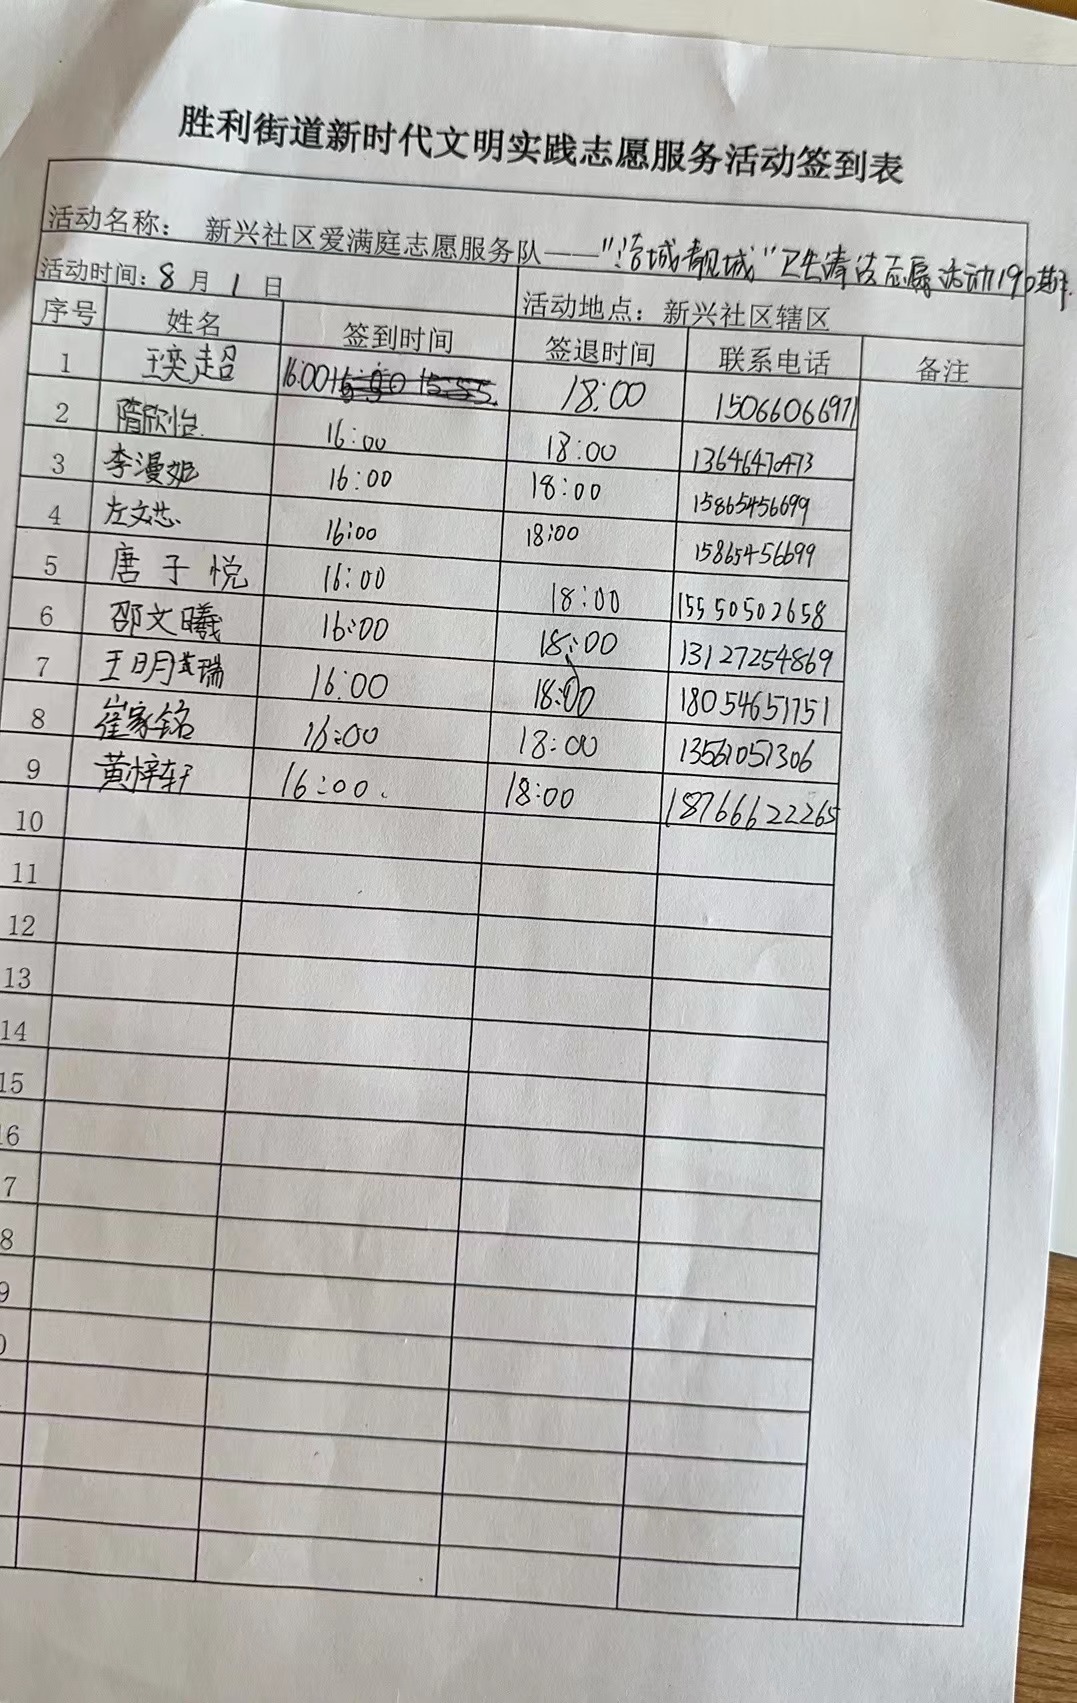 胜利街道新时代文明实践志愿服务活动签到表
活动名称： 新兴社区爱满庭志愿服务队——"洁城靓城"卫生清洁志愿活动190期
活动时间：8月1日 活动地点：新兴社区辖区
序号 姓名 签到时间 签退时间 联系电话 备注
1 王奕超 16:00 18:00 15066066971
2 隋欣怡 16:00 18:00 13646470473
3 李漫妮 16:00 18:00 15865456699
4 左文芯 16:00 18:00 15865456699
5 唐子悦 16:00 18:00 15550502658
6 邵文曦 16:00 18:00 13127254869
7 王明萱瑞 16:00 18:00 18054651751
8 崔家铭 16:00 18:00 13561051306
9 黄梓轩 16:00. 18:00 18766622265
10
11
12
13
14
15
16
7
8
9
0